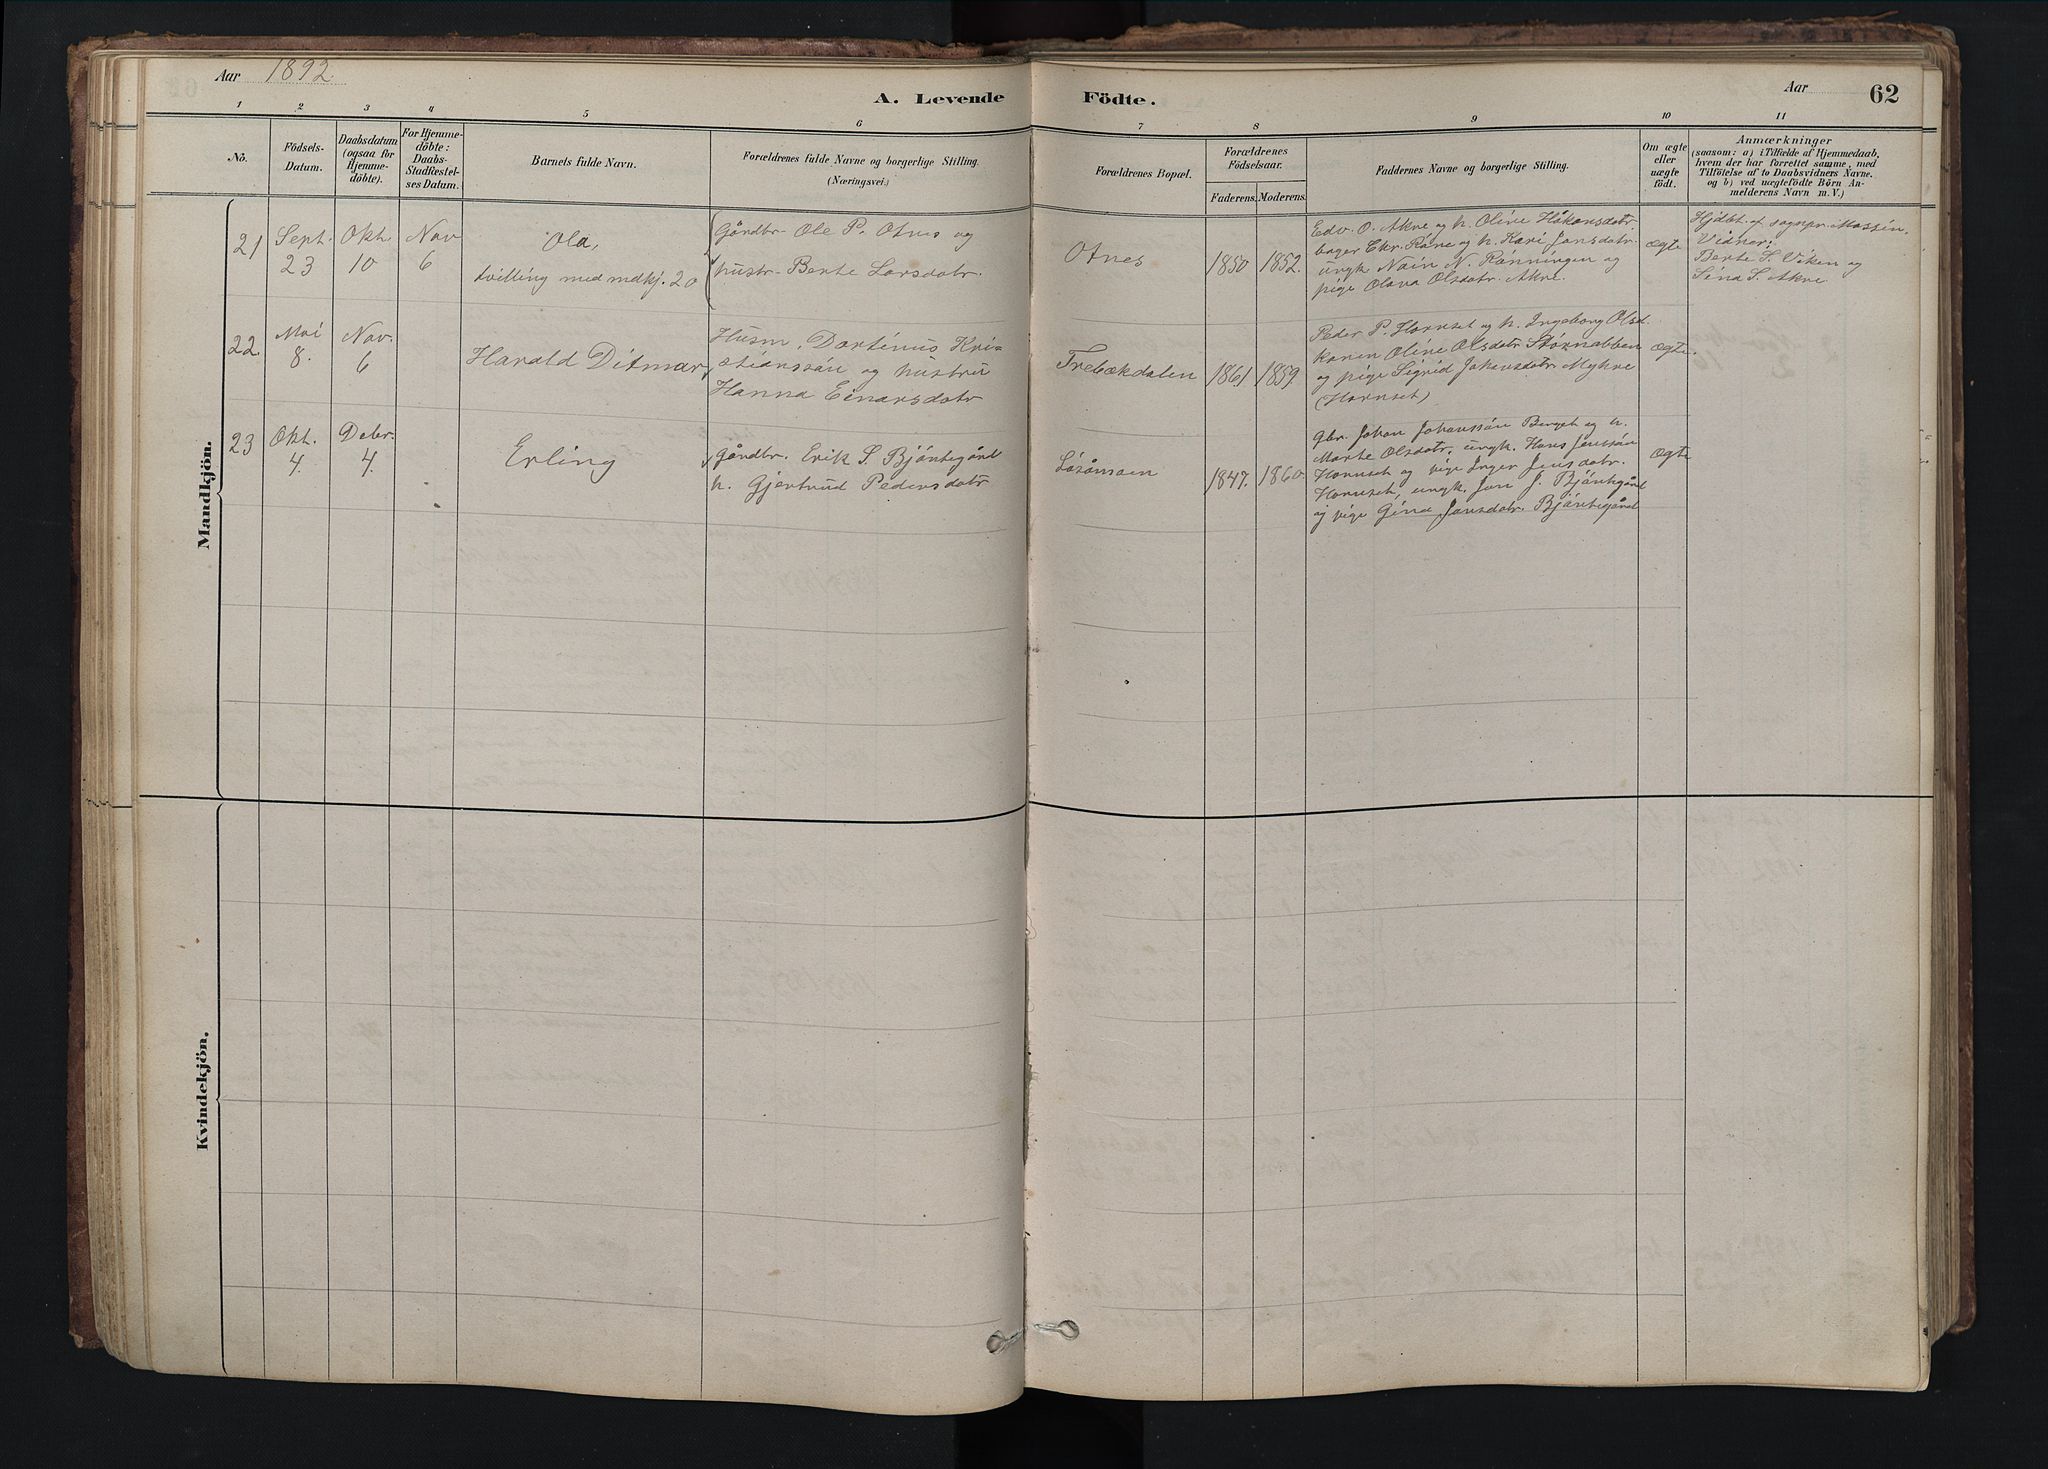 Aar 1892
A. Levende Födte.
Aar 62
1 2 3 4 5 6 7 8 9 10 11
No.
Födsels-
Datum.
Daabsdatum
(ogsaa for
Hjemme-
döbte).
For Hjemme-
döbte:
Daabs-
Stadfæstel-
ses Datum.
Barnets fulde Navn.
Forældrenes fulde Navne og borgerlige Stilling.
(Næringsvei.)
Forældrenes Bopæl.
Forældrenes
Födselsaar.
Faderens. Moderens.
Faddernes Navne og borgerlige Stilling.
Om ægte
eller
uægte
födt.
Anmærkninger
(saasom: a) i Tilfælde af Hjemmedaab,
hvem der har forrettet samme, med
Tilföielse af to Daabsvidners Navne.
og b) ved uægtefödte Börn An-
melderens Navn m. V.)
Mandkjön.
21
Sept.
23
Okt.
10
Nov
6
Ola,
tvilling med mdkj. 20
Gårdbr. Ole P. Otnes og
hustr. Berte Larsdatr.
Otnes
1850 1852.
Edv. O. Akre og h. Oline Håkonsdatr.
bager Chr. Ravne og h. Kari Jonsdatr.
ungk. Nain N. Rønningen og
pige Olava Olsdatr. Akre.
ægte
Hjdbt. af sognepr. Massin.
Vidner:
Berte S. Viken og
Sina S. Akre.
22.
Mai
8.
Nov.
6
Harald Ditmar
Husm. Dortinus Kri-
stianssøn og hustru
Hanna Einarsdatr
Trebækdalen
1861 1859.
Peder P. Hornset og h. Ingeborg Olsd.
karen Oline Olsdatr. Støznabben
og pige Sigrid Johansdatr. Myhre
(Hornset)
ægte.
23
Okt.
4.
Debr.
4.
Erling
Gårdbr. Erik S. Bjøntegård
h. Gjertrud Pedersdatr
Løsåmoen
1847. 1860.
Gbr. Johan Johanssøn Berget og h.
Marte Olsdatr. ungk. Hans Jenssøn
Hornset og pige Inger Jensdatr.
Hornset, ungk. Jon J. Bjøntegård
og pige Gina Jonsdatr. Bjøntegård
Ægte
Kvindekjön.